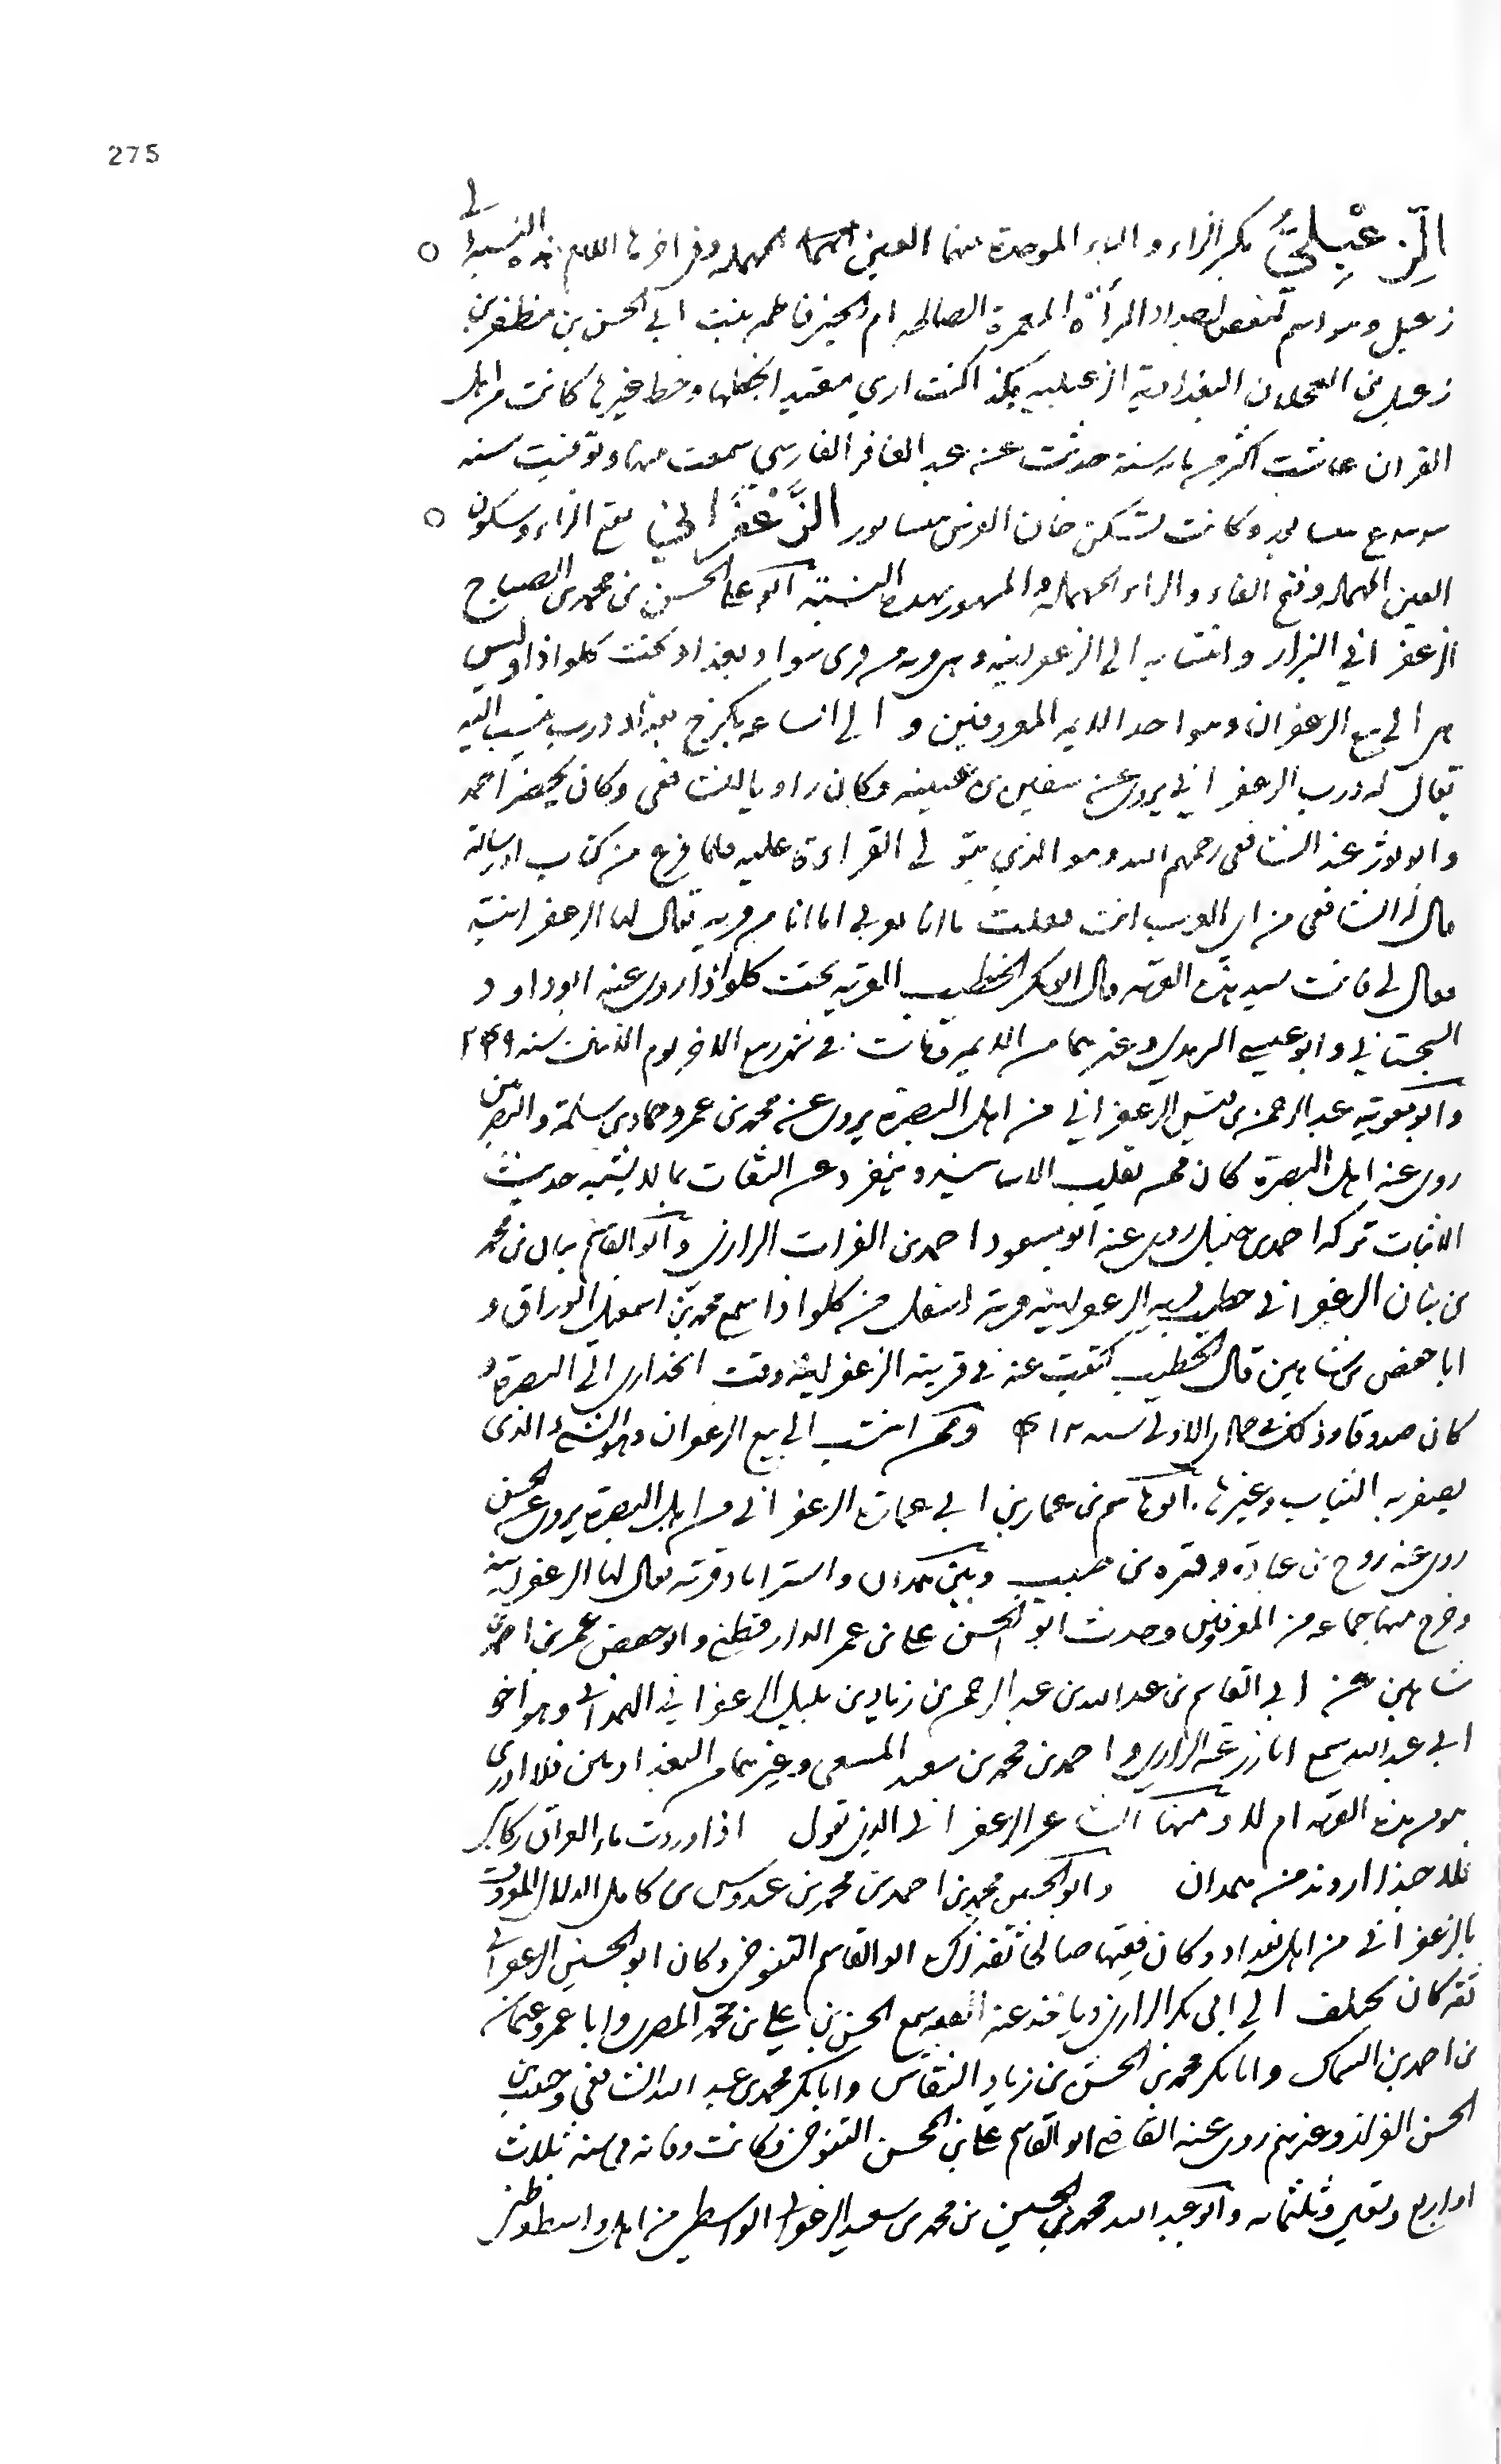 275
الزِّعْبِلِيُّ بكسر الزاء والباء الموحدة بينهما العين المهملة وفي اخرها اللام هذه النسبة الى
زعبل وهو اسم لبعض اجداد المرأة المعمرة الصالحة ام الخير فاطمة بنت ابي الحسن بن مظفر بن
زعبل بن العجلان البغدادية الزعبلية هكذا كنت ارى مقيدا بخطها وخط غيرها كانت من اهل
القران عاشت اكثر من مايه سنة حدثت عن عبد الغافر الفارسي سمعت منها وتوفيت سنه
وكانت تسكن خان الفرس الزَّعْفَرَانيُّ بفتح الزاء وسكون
العين المهملة وفتح الفاء والراء المهملة والمشهور بهذه النسبة ابو علي الحسن بن محمد بن الصباح
الزعفراني البزار وانتسابه الى الزعفرانية وهي قرية من قرى سواد بغداد تحت كلواذا وليس
هي الى بيع الزعفران وهو احد الايمه المعروفين والى الساعة بكرخ بغداد درب ينسب اليه
يقال له درب الزعفراني يروى عن سفين بن عيينه وكان راويا للشافعي وكان يحضر احمد
وابو ثور عند الشافعي رحمهم الله وهو الذي يتولى القراءة عليه فلما فرغ من كتاب الرسالة
قال له الشافعي من اي العرب انت فقلت ما انا بعربي انما انا من قرية يقال لها الزعفرانية
فقال لي فانت سيد هذه القرية قال ابو بكر الخطيب القرية تحت كلواذا روى عنه ابو داود
السجستاني وابو عيسى الترمذي وغيرهما من الايمه ومات في شهر ربيع الاخر يوم الاثنين سنه ٢٤٩
وابو معوية عبد الرحمن بن قيس الزعفراني من اهل البصرة يروى عن محمد بن عمرو وحماد بن سلمة والبصريين
روى عنه اهل البصرة كان ممن يقلب الاسانيد وينفرد عن الثقات بما لا يشبه حديث
الاثبات تركه احمد بن حنبل روى عنه ابو مسعود احمد بن الفرات الرازي وابو القاسم بنان بن محمد
بن بنان الزعفراني خطيب قرية الزعفرانية قرية اسفل من كلواذا سمع محمد بن اسمعيل الوراق و
ابا حفص بن شاهين قال الخطيب كتبت عنه في قرية الزعفرانية وقت انحداري الى البصرة و
كان صدوقا وذلك في جمادى الاولى سنه ٤١٢ وممن انتسب الى بيع الزعفران وهو الشيء الذى
يصفر به الثياب وغيرها ابو هاسم بن عمار بن ابي عمارة الزعفراني من اهل البصرة يروى عن الحسن
روى عنه روح بن عبادة وقرة بن حبيب وبين همدان واستراباد قرية يقال لها الزعفرانية
وخرج منها جماعه من المعروفين وحدث ابو الحسن علي بن عمر الدارقطني وابو حفص عمر بن احمد بن
شاهين عن ابي القاسم بن عبد الله بن عبد الرحمن بن زياد بن بلبل الزعفراني الهمداني وهو اخو
ابي عبد الله سمع ابا زرعة الرازي واحمد بن محمد بن سعيد وغيرهما من البغداديين فلا ادرى
هو من هذه القرية ام لا ومنها الشاعر الزعفراني الذي يقول اذا وردت ماء العراق ركايبي
فلا حبذا اروند من همدان وابو الحسن محمد بن احمد بن محمد بن عبدوس بن كامل الدلال المعروف
بالزعفراني من اهل بغداد وكان فقيها صالحا ثقة ذكره ابو القاسم التنوخي وكان ابو الحسين الزعفراني
ثقة كان يختلف الى ابي بكر الرازي وياخذ عنه الفقه سمع الحسن بن علي بن محمد المصري وابا عمرو عثمان
بن احمد بن السماك وابا بكر محمد بن الحسن بن زياد النقاش وابا بكر محمد بن عبد الله الشافعي وحبيب بن
الحسن القزاز وغيرهم روى عنه القاضي ابو القاسم علي بن المحسن التنوخي وكانت وفاته في سنه ثلاث
او اربع وتسعين وثلثمايه وابو عبد الله محمد بن الحسين بن محمد بن سعيد الزعفراني الواسطي من اهل واسط